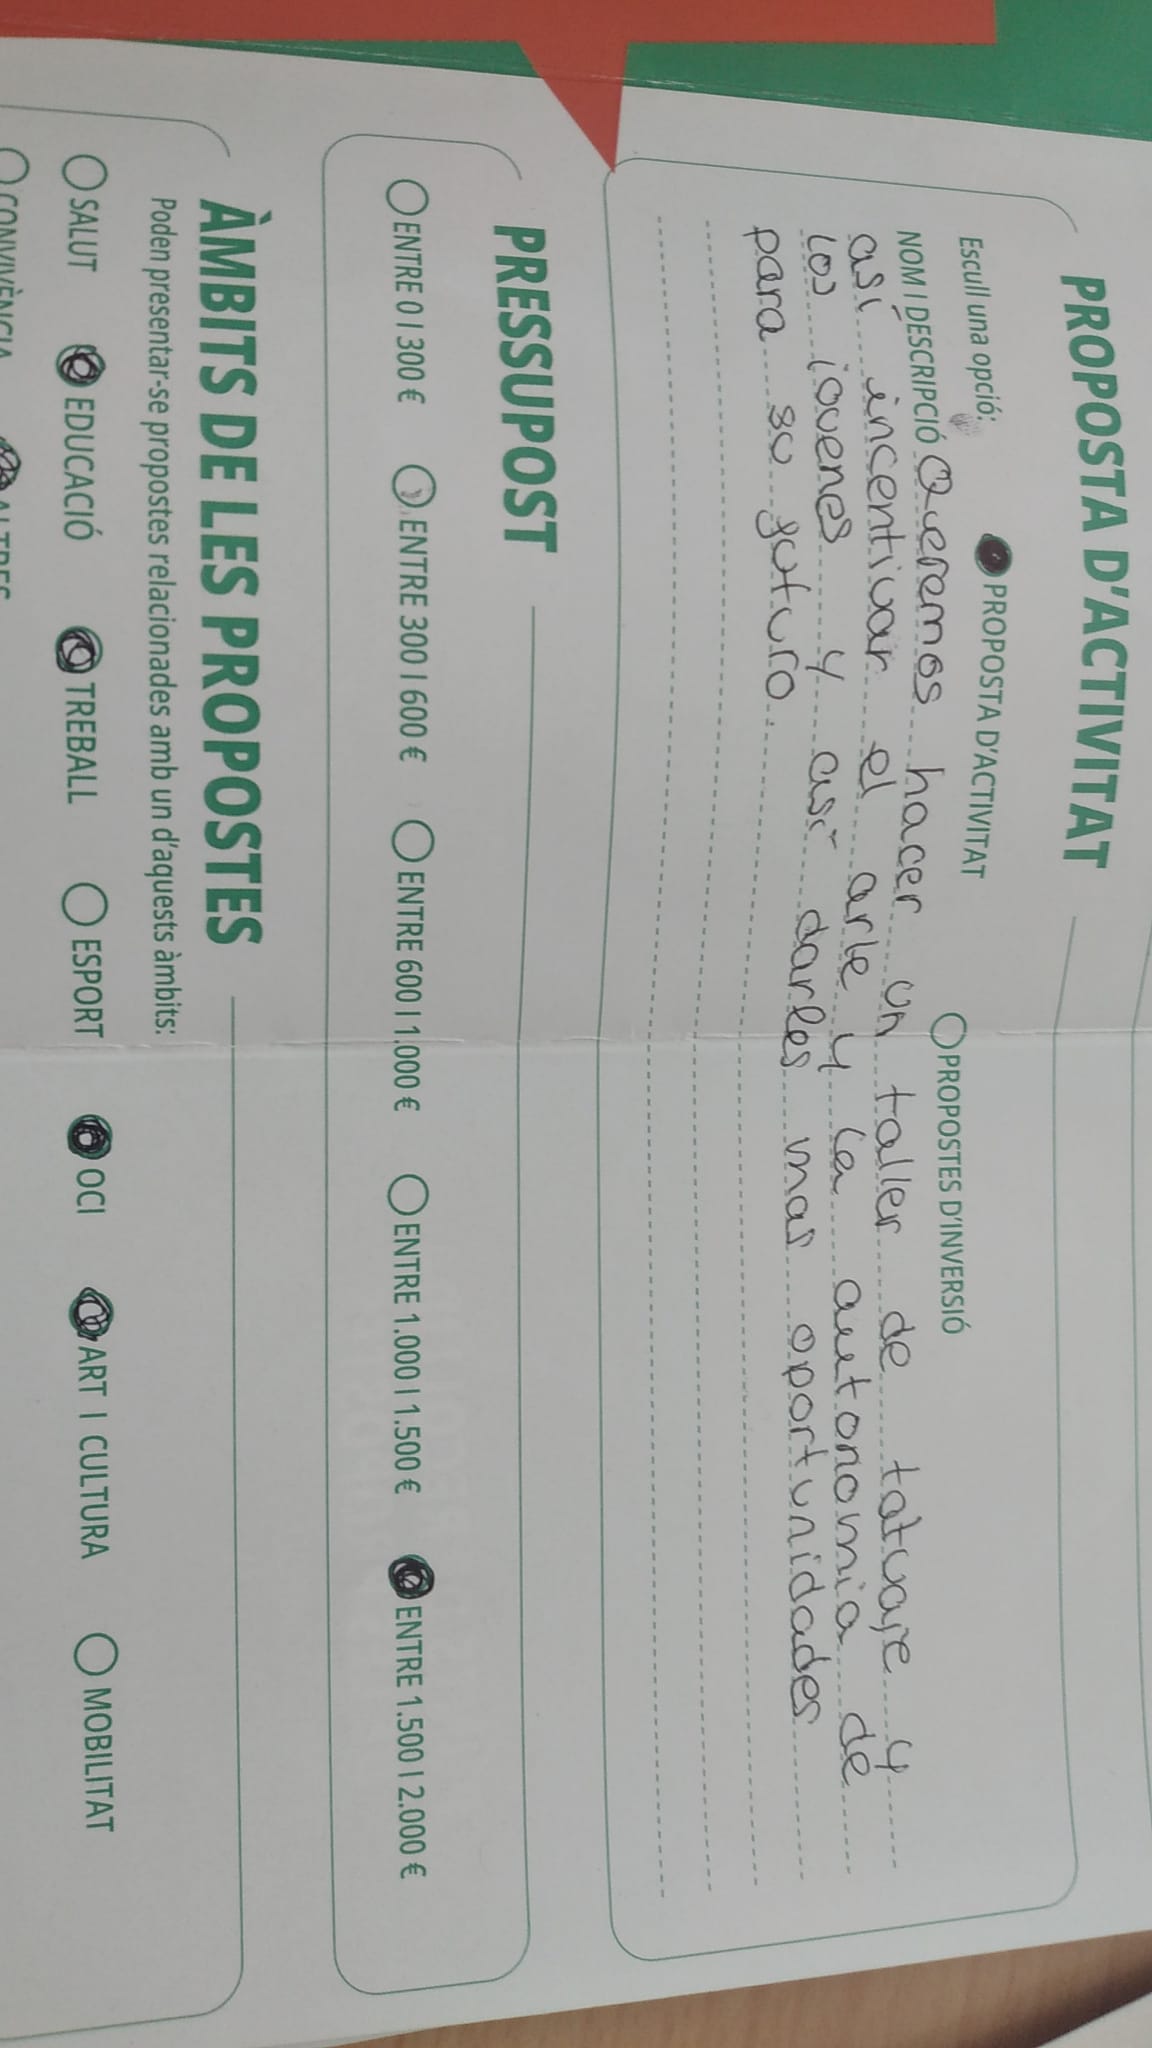 PROPOSTA D'ACTIVITAT
Escull una opció:
PROPOSTA D'ACTIVITAT
PROPOSTES D'INVERSIÓ
NOM I DESCRIPCIÓ Queremos hacer un taller de tatuaje y
así incentivar el arte y la autonomia de
los jovenes y así darles mas oportunidades
para su futuro.
PRESSUPOST
ENTRE 0 I 300 €
ENTRE 300 I 600 €
ENTRE 600 I 1.000 €
ENTRE 1.000 I 1.500 €
ENTRE 1.500 I 2.000 €
ÀMBITS DE LES PROPOSTES
Poden presentar-se propostes relacionades amb un d'aquests àmbits:
SALUT
EDUCACIÓ
TREBALL
ESPORT
OCI
ART I CULTURA
MOBILITAT
CONVIVÈNCIA
ALTRES